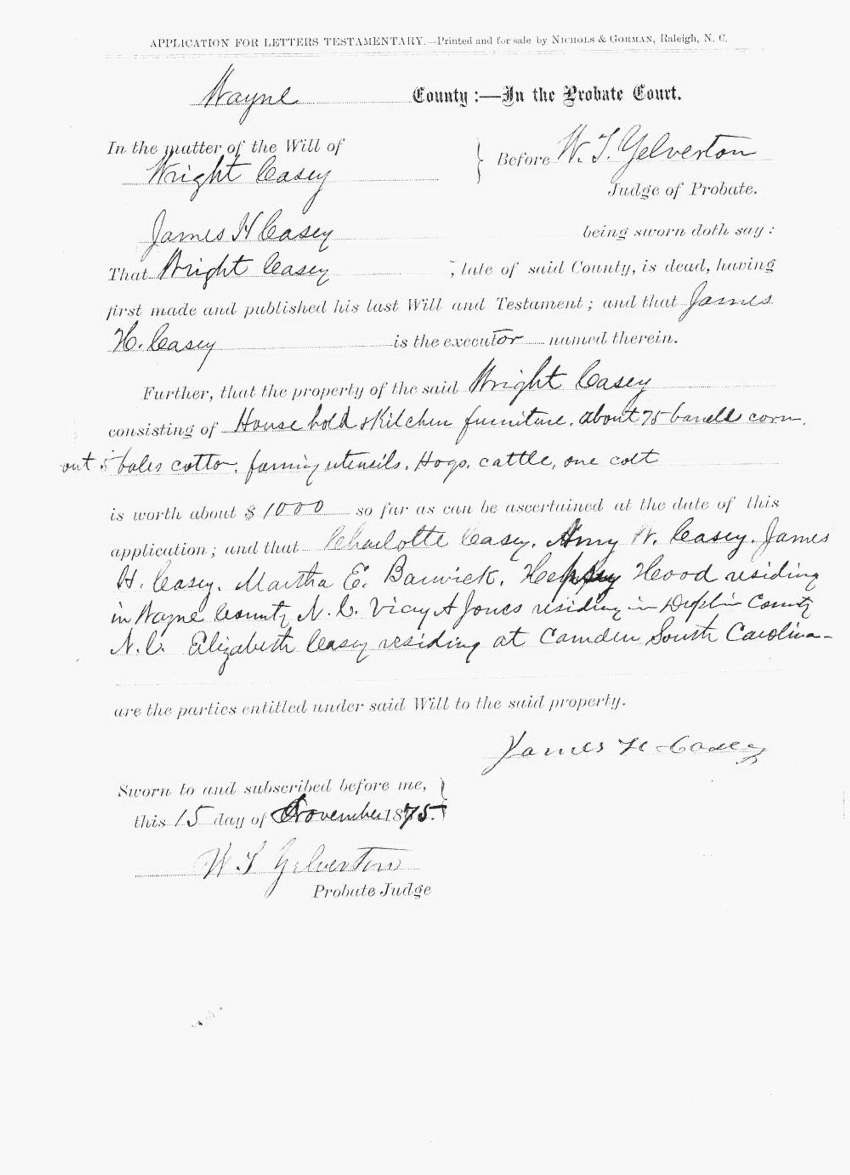 APPLICATION FOR LETTERS TESTAMENTARY.—Printed and for sale by NICHOLS & GORMAN, Raleigh, N. C.
Wayne County:—In the Probate Court.
In the matter of the Will of
Wright Casey
} Before W. T. Yelverton
Judge of Probate.
James H Casey being sworn doth say:
That Wright Casey, late of said County, is dead, having
first made and published his last Will and Testament; and that James
H. Casey is the executor named therein.
Further, that the property of the said Wright Casey
consisting of House hold & Kitchen furniture, about 75 barells corn,
out 5 bales cotton, farming utencils, Hogs, cattle, one colt
is worth about $ 1000 so far as can be ascertained at the date of this
application; and that Charlotte Casey, W. Casey, James
H. Casey, Martha E. Barwick, Hepsy Hood residing
in Wayne County N. C. Vicy A Jones residing in Duplin County
N. C. Elizabeth Casey residing at Camden South Carolina—
are the parties entitled under said Will to the said property.
James H Casey
Sworn to and subscribed before me, }
this 15 day of November 1875.
W T Yelverton
Probate Judge